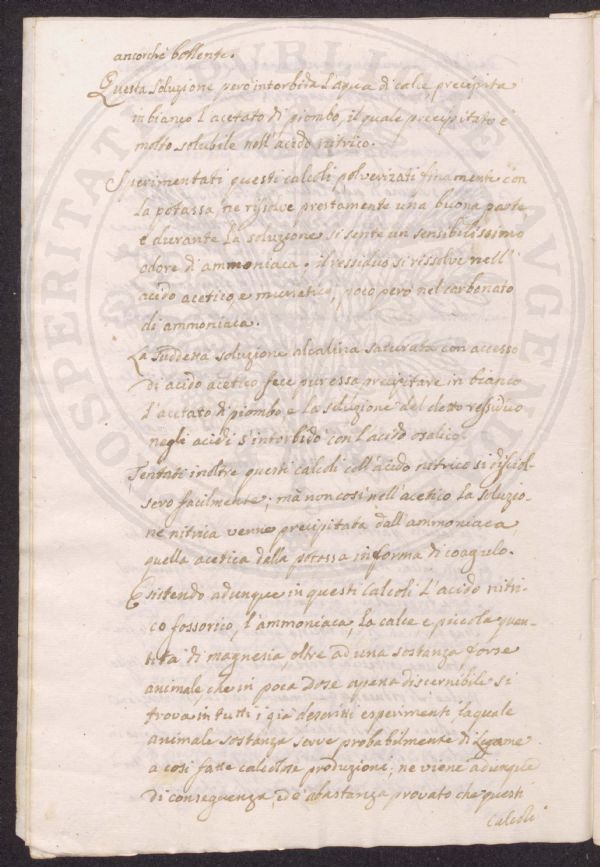 ancorché bollente.
Questa soluzione però intorbida l'aqua di calce, precipita
in bianco l'acetato di piombo, il quale precipitato è
molto solubile nell'acido nitrico.
Sperimentati questi calcoli polverizati finamente con
la potassa ne risolve prestamente una buona parte
e durante la soluzione si sente un sensibilissimo
odore d'ammoniaca. il ressiduo si rissolve nell'
acido acetico e muriatico, poco però nel carbonato
di ammoniaca.
La suddetta soluzione alcalina saturata con accesso
di acido acetico fece pur essa precipitare in bianco
l'acetato di piombo e la soluzione del detto ressiduo
negli acidi s'intorbidò con l'acido osalico.
Tentati inoltre questi calcoli coll'acido nitrico si disciol-
sero facilmente, mà non così nell'acetico la soluzio-
ne nitrica venne precipitata dall'ammoniaca,
quella acetica della potassa in forma di coagulo.
Esistendo adunque in questi Calcoli l'acido nitri-
co fossorico, l'ammoniaca, la calce e picciola quan-
tità di magnesia, oltre ad una sostanza forse
animale, che in poca dose apena discernibile si
trova in tutti i già descritti esperimenti laquale
animale sostanza serve probabilmente di Legame
a così fatte calcolose produzioni; ne viene adunque
di conseguenza, ed è abastanza provato che questi
calcoli
PROSPERITATI PUBLICAE AVGENDAE